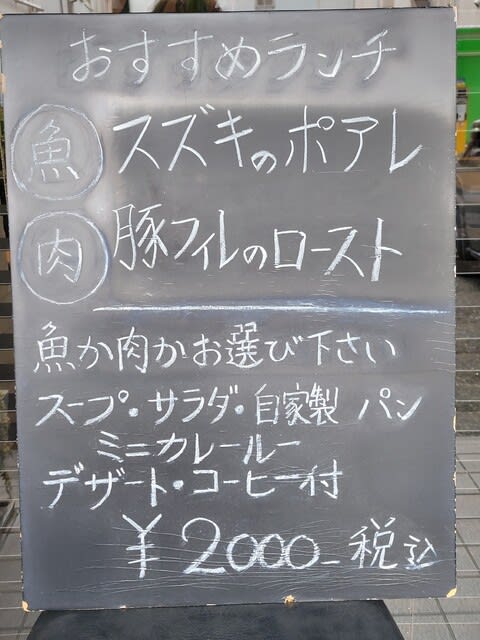 おすすめランチ
魚 スズキのポアレ
肉 豚フィレのロースト
魚か肉かお選び下さい
スープ・サラダ・自家製 パン
ミニカレールー
デザート・コーヒー付
￥2000- 税込